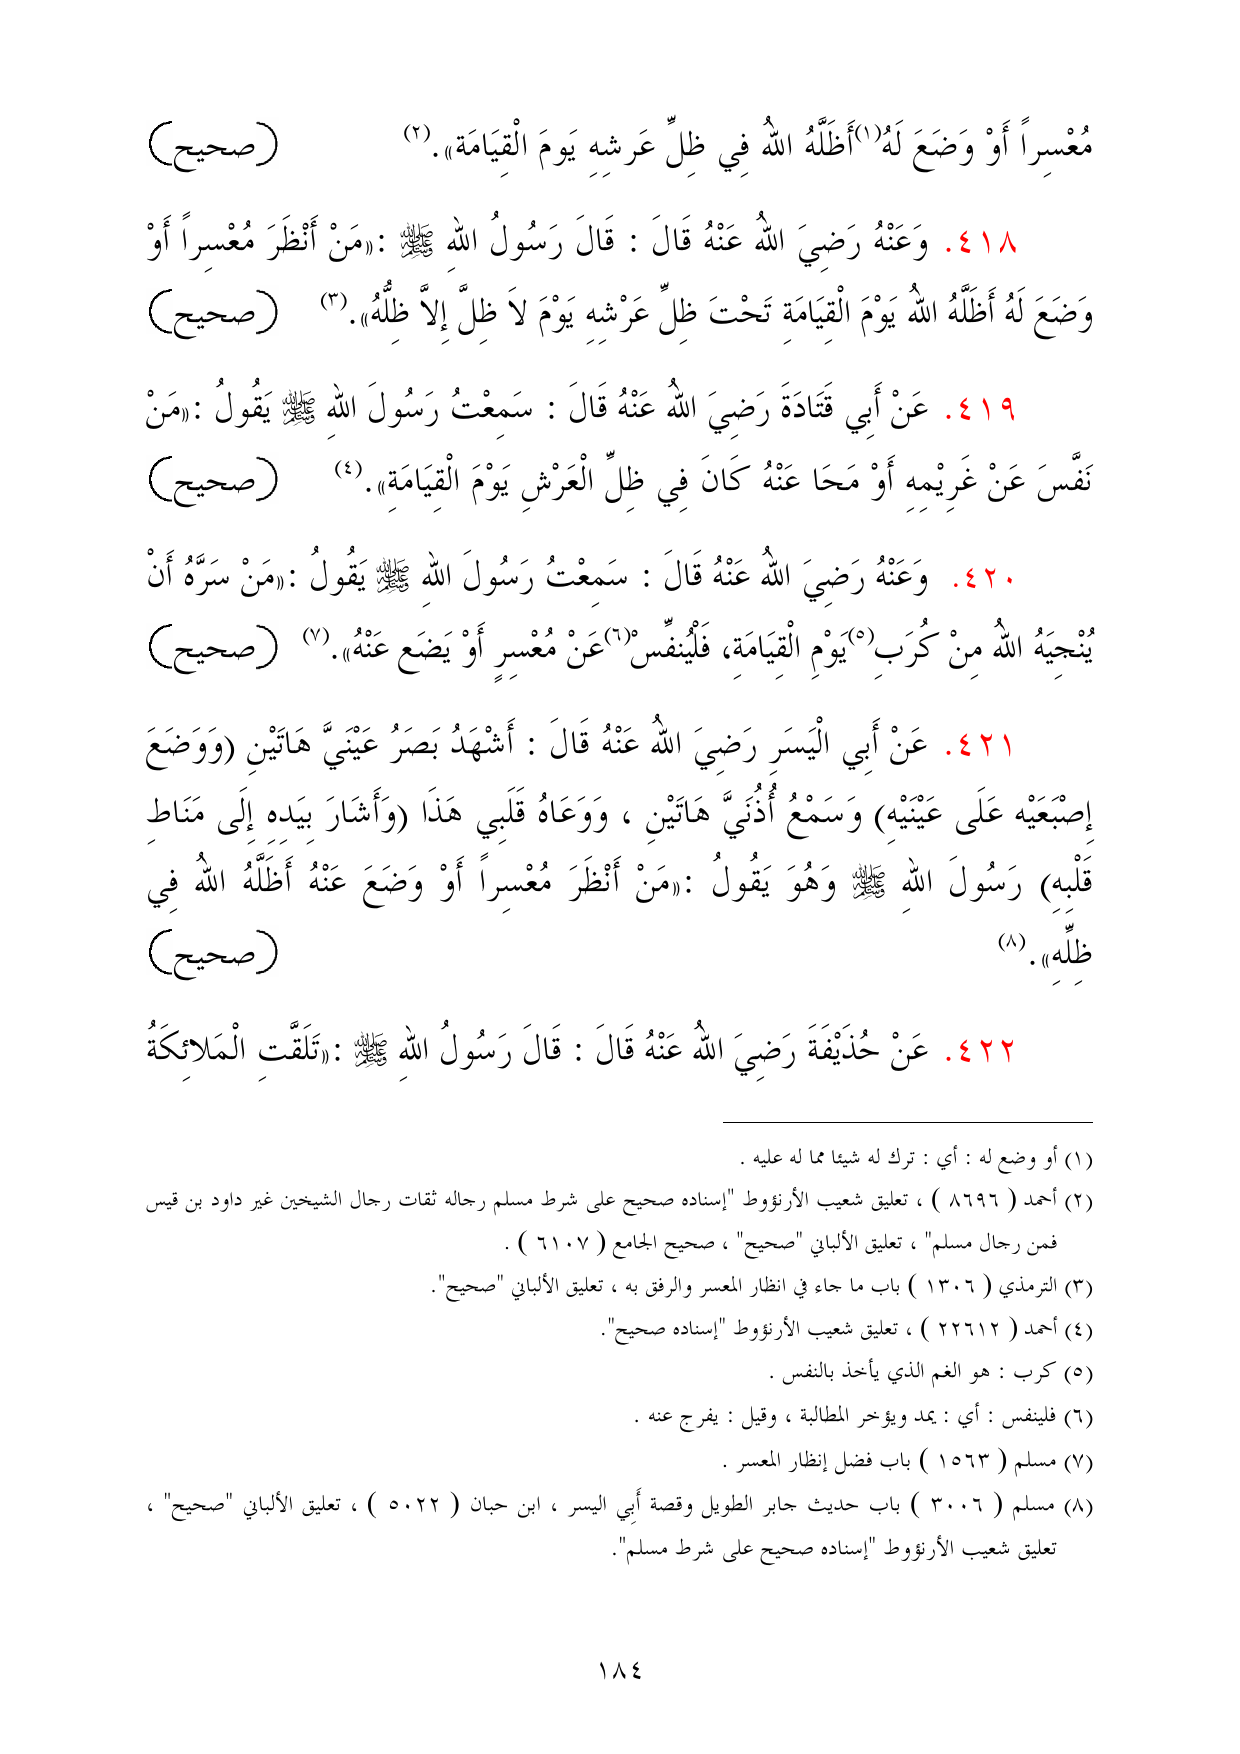 مُعْسِراً أَوْ وَضَعَ لَهُ(١)أَظَلَّهُ اللهُ فِي ظِلِّ عَرشِهِ يَومَ الْقِيَامَةِ».(٢) (صحيح)
٤١٨. وَعَنْهُ رَضِيَ اللهُ عَنْهُ قَالَ : قَالَ رَسُولُ اللهِ ﷺ :«مَنْ أَنْظَرَ مُعْسِراً أَوْ
وَضَعَ لَهُ أَظَلَّهُ اللهُ يَوْمَ الْقِيَامَةِ تَحْتَ ظِلِّ عَرْشِهِ يَوْمَ لاَ ظِلَّ إِلاَّ ظِلُّهُ».(٣) (صحيح)
٤١٩. عَنْ أَبِي قَتَادَةَ رَضِيَ اللهُ عَنْهُ قَالَ : سَمِعْتُ رَسُولَ اللهِ ﷺ يَقُولُ :«مَنْ
نَفَّسَ عَنْ غَرِيْمِهِ أَوْ مَحَا عَنْهُ كَانَ فِي ظِلِّ الْعَرْشِ يَوْمَ الْقِيَامَةِ».(٤) (صحيح)
٤٢٠. وَعَنْهُ رَضِيَ اللهُ عَنْهُ قَالَ : سَمِعْتُ رَسُولَ اللهِ ﷺ يَقُولُ :«مَنْ سَرَّهُ أَنْ
يُنْجِيَهُ اللهُ مِنْ كُرَبِ(٥)يَوْمِ الْقِيَامَةِ، فَلْيُنفِّسْ(٦)عَنْ مُعْسِرٍ أَوْ يَضَع عَنْهُ».(٧) (صحيح)
٤٢١. عَنْ أَبِي الْيَسَرِ رَضِيَ اللهُ عَنْهُ قَالَ : أَشْهَدُ بَصَرُ عَيْنَيَّ هَاتَيْنِ (وَوَضَعَ
إِصْبَعَيْهِ عَلَى عَيْنَيْهِ) وَسَمْعُ أُذُنَيَّ هَاتَيْنِ ، وَوَعَاهُ قَلَبِي هَذَا (وَأَشَارَ بِيَدِهِ إِلَى مَنَاطِ
قَلْبِهِ) رَسُولَ اللهِ ﷺ وَهُوَ يَقُولُ :«مَنْ أَنْظَرَ مُعْسِراً أَوْ وَضَعَ عَنْهُ أَظَلَّهُ اللهُ فِي
ظِلِّهِ».(٨) (صحيح)
٤٢٢. عَنْ حُذَيْفَةَ رَضِيَ اللهُ عَنْهُ قَالَ : قَالَ رَسُولُ اللهِ ﷺ :«تَلَقَّتِ الْمَلائِكَةُ
(١) أو وضع له : أي : ترك له شيئا مما له عليه .
(٢) أحمد ( ٨٦٩٦ ) ، تعليق شعيب الأرنؤوط "إسناده صحيح على شرط مسلم رجاله ثقات رجال الشيخين غير داود بن قيس
فمن رجال مسلم" ، تعليق الألباني "صحيح" ، صحيح الجامع ( ٦١٠٧ ) .
(٣) الترمذي ( ١٣٠٦ ) باب ما جاء في انظار المعسر والرفق به ، تعليق الألباني "صحيح".
(٤) أحمد ( ٢٢٦١٢ ) ، تعليق شعيب الأرنؤوط "إسناده صحيح".
(٥) كرب : هو الغم الذي يأخذ بالنفس .
(٦) فلينفس : أي : يمد ويؤخر المطالبة ، وقيل : يفرج عنه .
(٧) مسلم ( ١٥٦٣ ) باب فضل إنظار المعسر .
(٨) مسلم ( ٣٠٠٦ ) باب حديث جابر الطويل وقصة أَبِي اليسر ، ابن حبان ( ٥٠٢٢ ) ، تعليق الألباني "صحيح" ،
تعليق شعيب الأرنؤوط "إسناده صحيح على شرط مسلم".
١٨٤